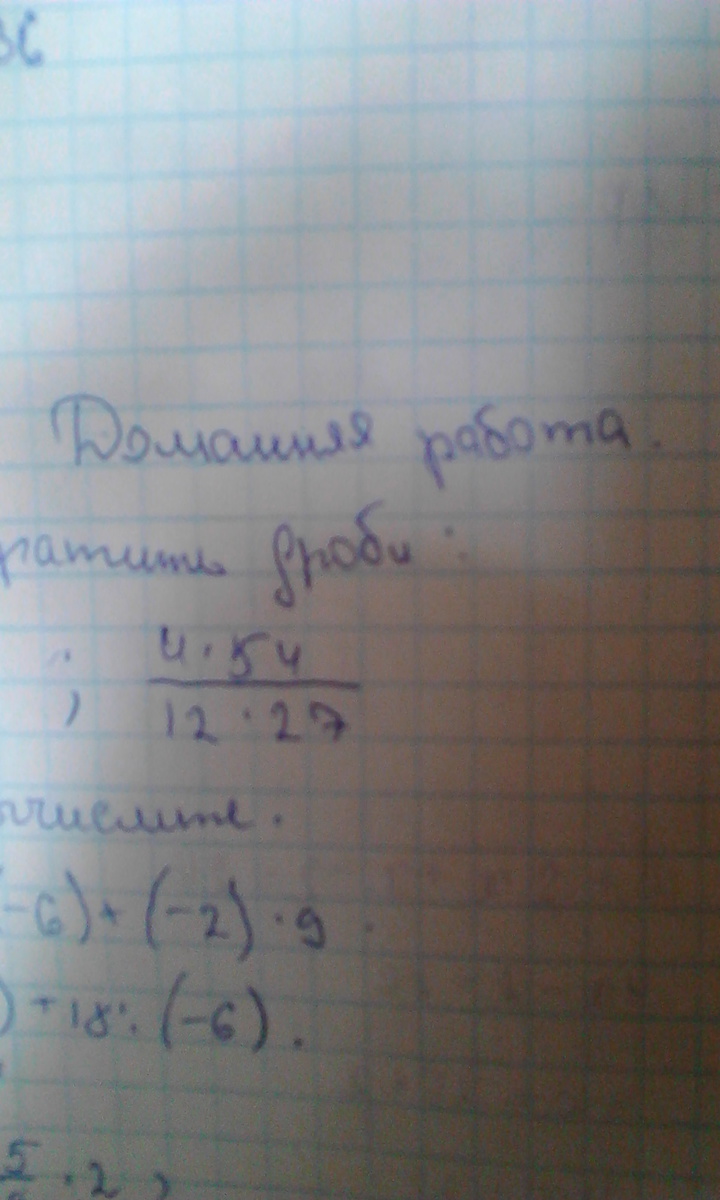 36
Домашняя работа.
ратить дроби:
; 4·54
12·27
ычислите.
(-6)+(-2)·9.
)+18:(-6).
5
·2,